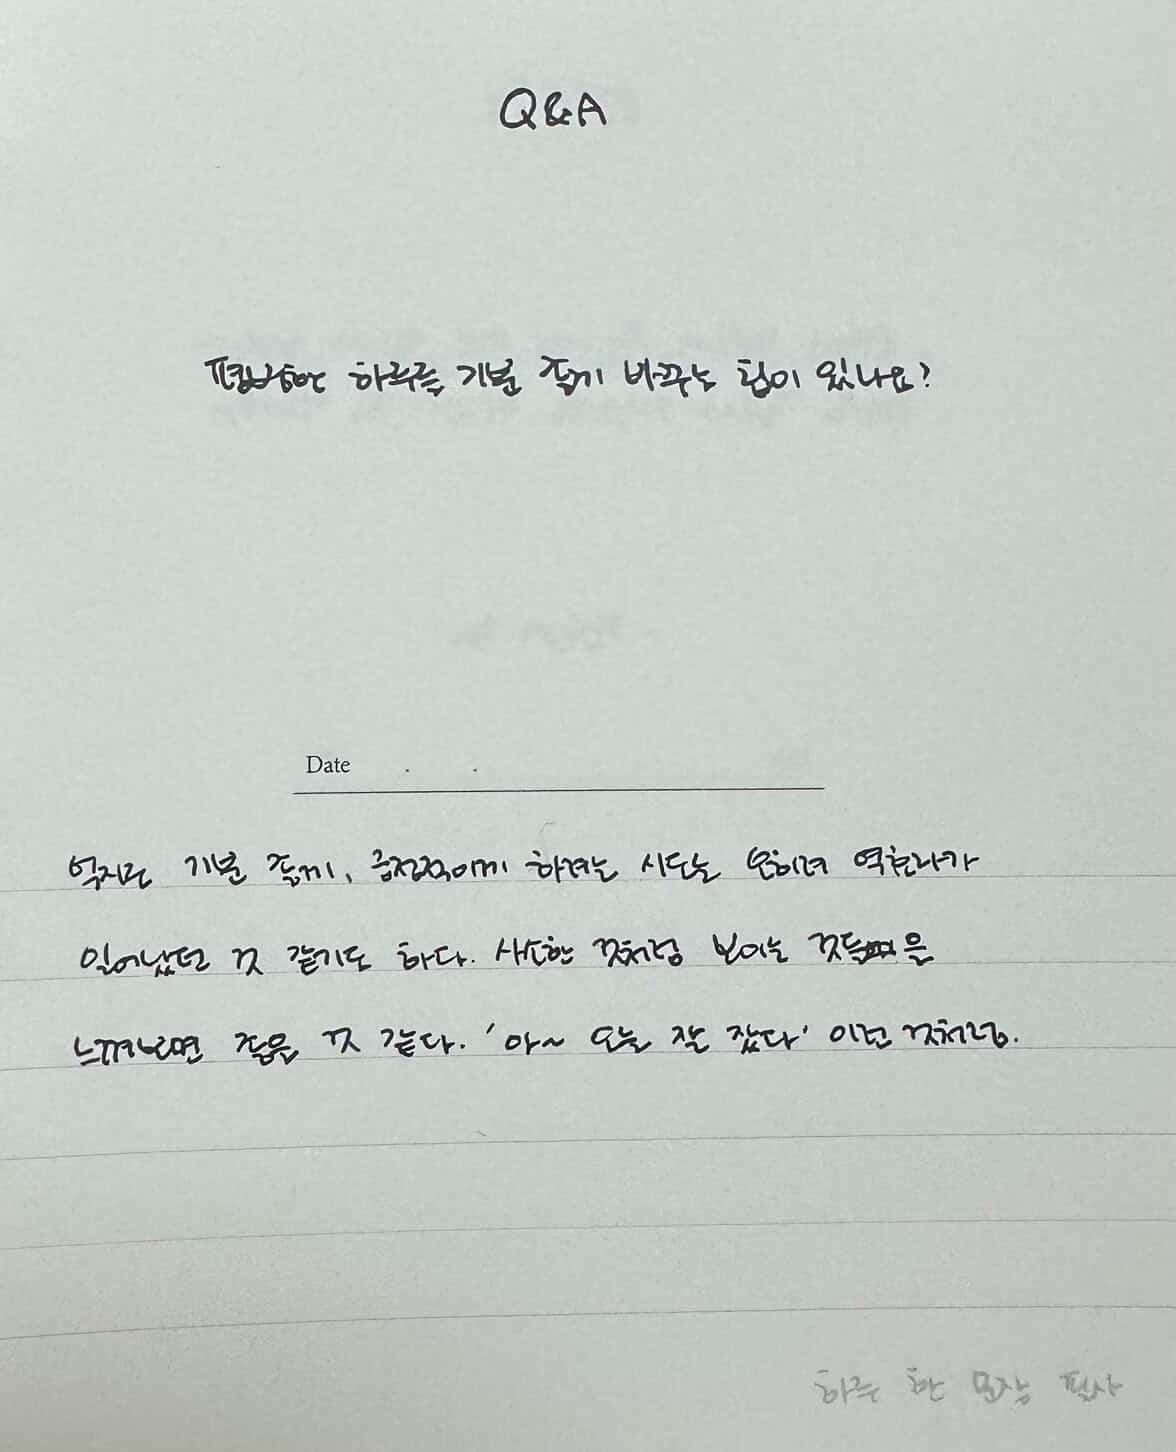 Q&A
평범한 하루를 기분 좋게 바꾸는 힘이 있나요?
Date . .
억지로 기분 좋게, 긍정적이게 하려는 시도는 오히려 역효과가
일어났던 것 같기도 하다. 사소한 것처럼 보이는 것들을
느껴보면 좋을 것 같다. '아~ 오늘 잘 잤다' 이런 것처럼.
하루 한 문장 필사